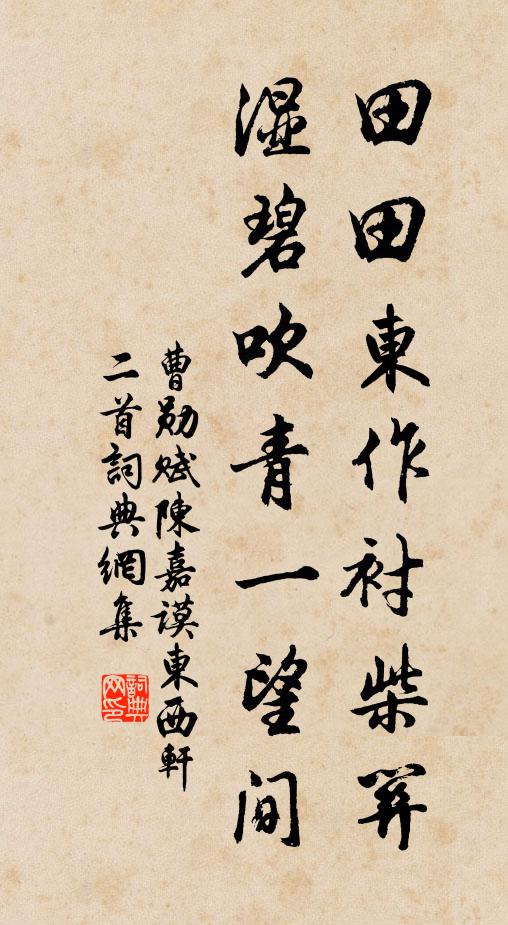 田田東作衬柴關
湿碧吹青一望間
曹勛賦陳嘉謨東西軒
二首詞典網集
詞典
网印